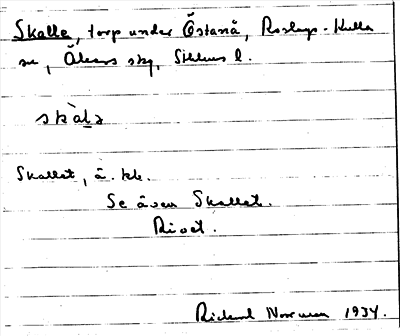 Skalle, torp under Östanå, Roslags-Kulla
sn, Åkers skg, Sthlms l.
skàlə
Skallet, ä. kk.
Se även Skallet.
Rivet.
Rickard Norrman 1934.